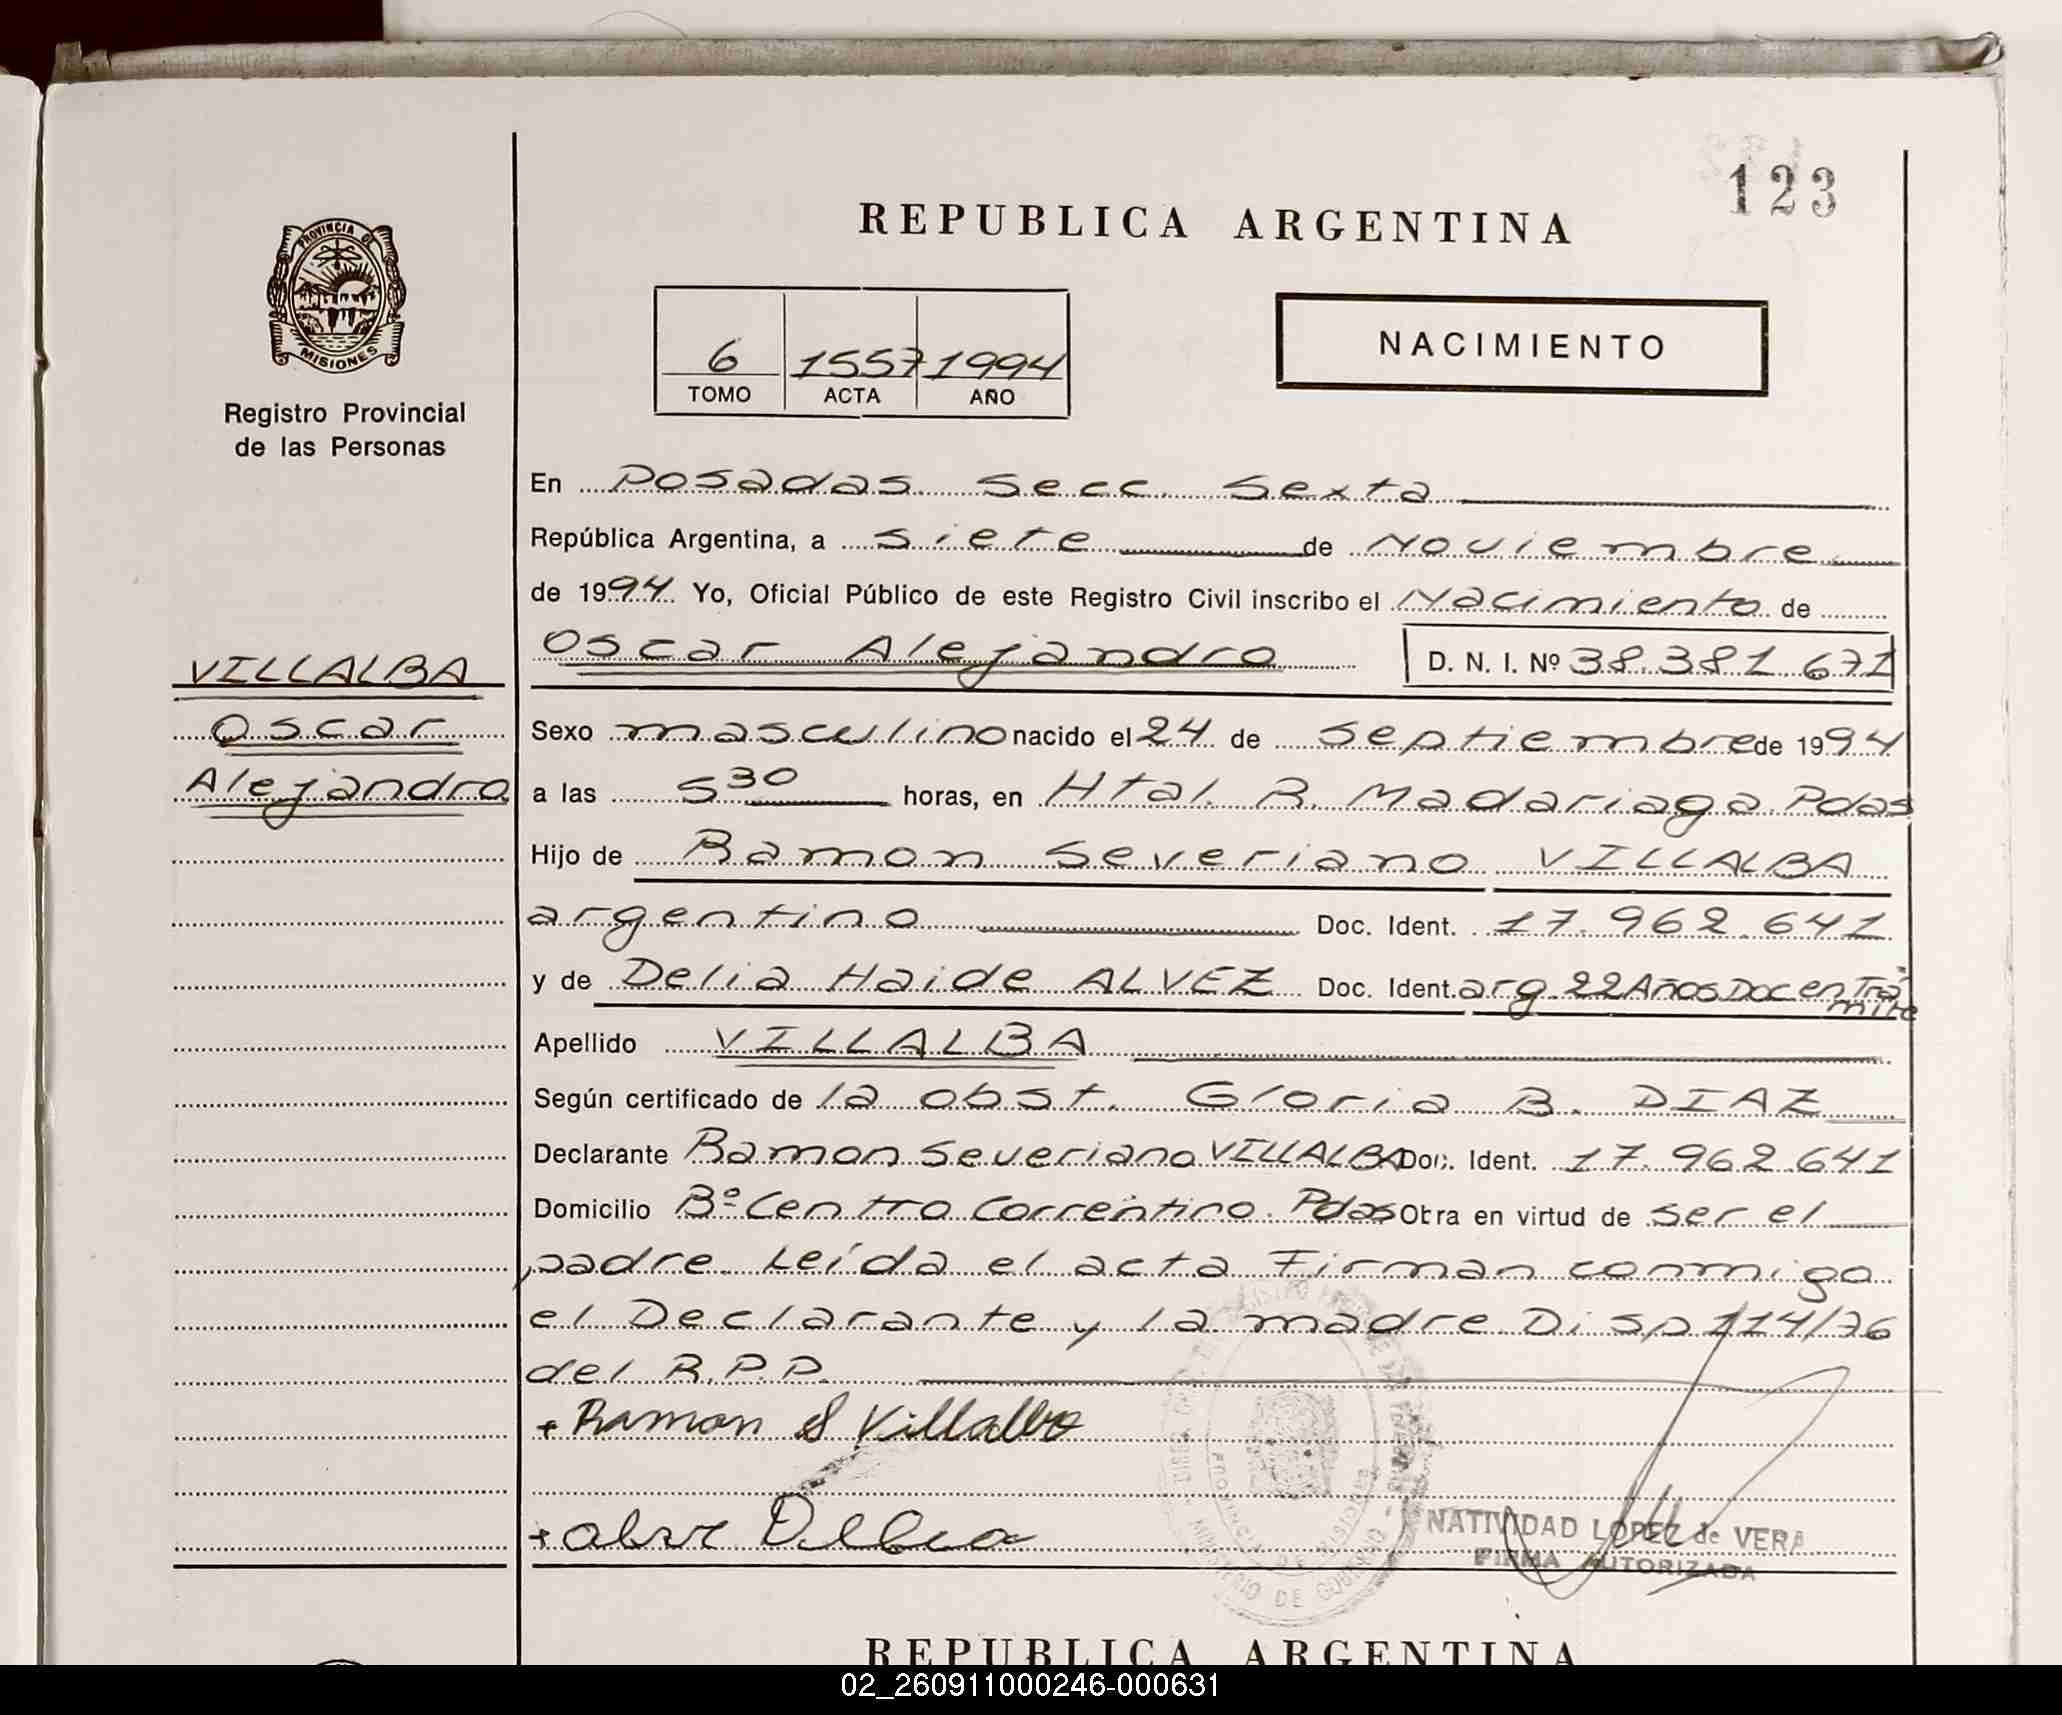 123
REPUBLICA ARGENTINA
PROVINCIA DE
MISIONES
Registro Provincial
de las Personas
6 1557 1994
TOMO ACTA AÑO
NACIMIENTO
VILLALBA
Oscar
Alejandro
En Posadas Secc. Sexta
República Argentina, a siete de Noviembre
de 1994 Yo, Oficial Público de este Registro Civil inscribo el Nacimiento de
Oscar Alejandro D. N. I. Nº 38.381.671
Sexo masculino nacido el 24 de Septiembre de 1994
a las 5 30 horas, en Htal. R. Madariaga. Pdas
Hijo de Ramon Severiano VILLALBA
argentino Doc. Ident. 17.962.641
y de Delia Haide ALVEZ Doc. Ident. arg. 22 Años Doc en Tra
mite
Apellido VILLALBA
Según certificado de la obst. Gloria B. DIAZ
Declarante Ramon Severiano VILLALBA Doc. Ident. 17.962.641
Domicilio Bº Centro Correntino. Pdas Otra en virtud de ser el
padre. Leída el acta Firman conmigo
el Declarante y la madre Disp 114/76
del R.P.P.
+ Ramon S Villalba
NATIVIDAD LOPEZ de VERA
FIRMA AUTORIZADA
PROVINCIA DE MISIONES
MINISTERIO DE GOBIERNO
REPUBLICA ARGENTINA
02_260911000246-000631